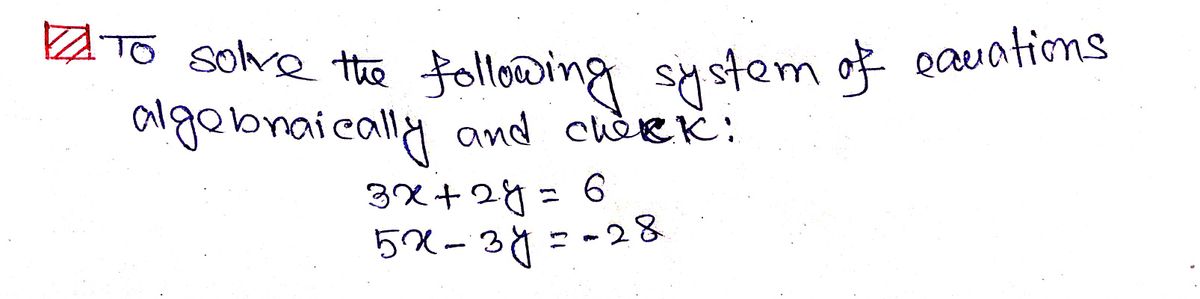 To solve the following system of eauations
algebnaically and check:
3x + 2y = 6
5x - 3y = -28